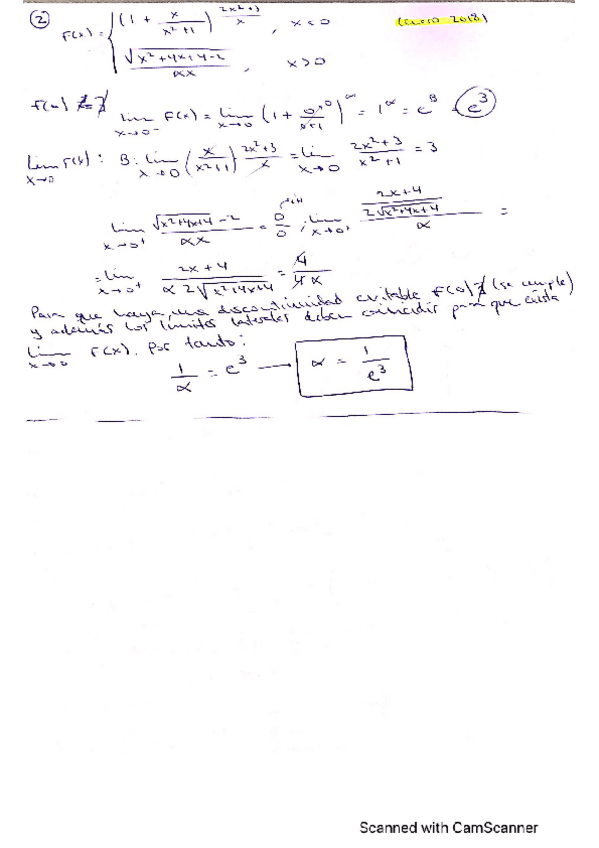 ② f(x) = { (1 + x/(x²+1))^((2x²+3)/x) , x<0 (Enero 2018)
√(x²+4x+4-2)/(αx) , x>0
f(0) ∄
lim x→0⁻ f(x) = lim x→0 (1 + 0/(x+1))^∞ = 1^∞ = e^B = e³
lim x→0 f(x) : B: lim x→0 (x/(x²+1)) (2x²+3)/x = lim x→0 (2x²+3)/(x²+1) = 3
lim x→0⁺ (√(x²+4x+4) - 2)/(αx) = 0/0 ; lim x→0⁺ ((2x+4)/(2√(x²+4x+4)))/α =
= lim x→0⁺ (2x+4)/(α 2√(x²+4x+4)) = 4/(4α)
Para que haya una discontinuidad evitable f(0) ∄ (se cumple)
y además los límites laterales deben coincidir para que exista
lim x→0 f(x). Por tanto:
1/α = e³ → α = 1/e³
Scanned with CamScanner